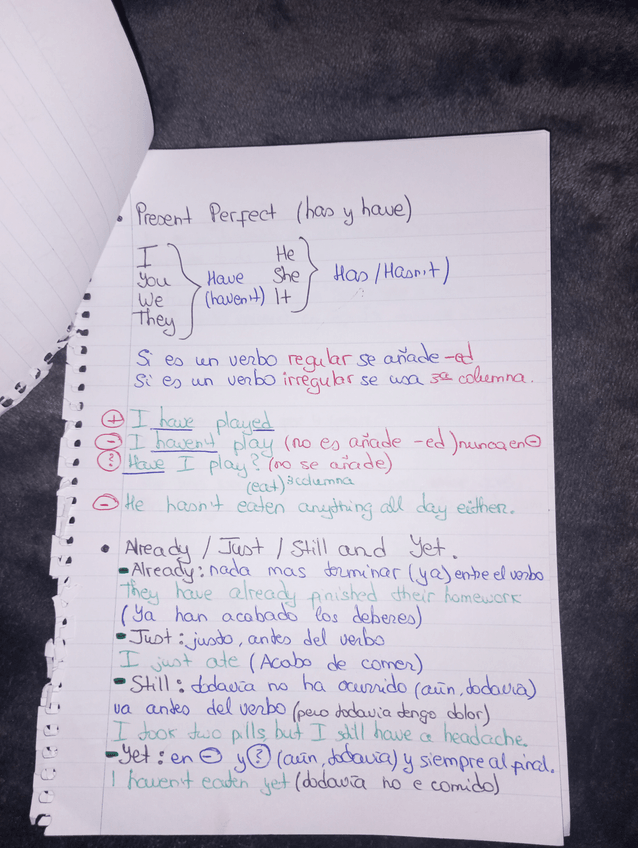 • Present Perfect (has y have)
I
You
We
They
Have
(haven't)
He
She
It
Has / Hasn't)
Si es un verbo regular se añade -ed
Si es un verbo irregular se usa 3ª columna.
+ I have played
- I haven't play (no es añade -ed) nunca en -
? Have I play? (no se añade)
(eat) 3 columna
- He hasn't eaten anything all day either.
• Already / Just / Still and Yet.
- Already: nada mas terminar (ya) entre el verbo
They have already finished their homework
(Ya han acabado los deberes)
- Just: justo, antes del verbo
I just ate (Acabo de comer)
- Still: todavía no ha ocurrido (aún, todavía)
va antes del verbo (pero todavía tengo dolor)
I took two pills, but I still have a headache.
- Yet: en - y ? (aún, todavía) y siempre al final.
I haven't eaten yet (todavía no e comido)